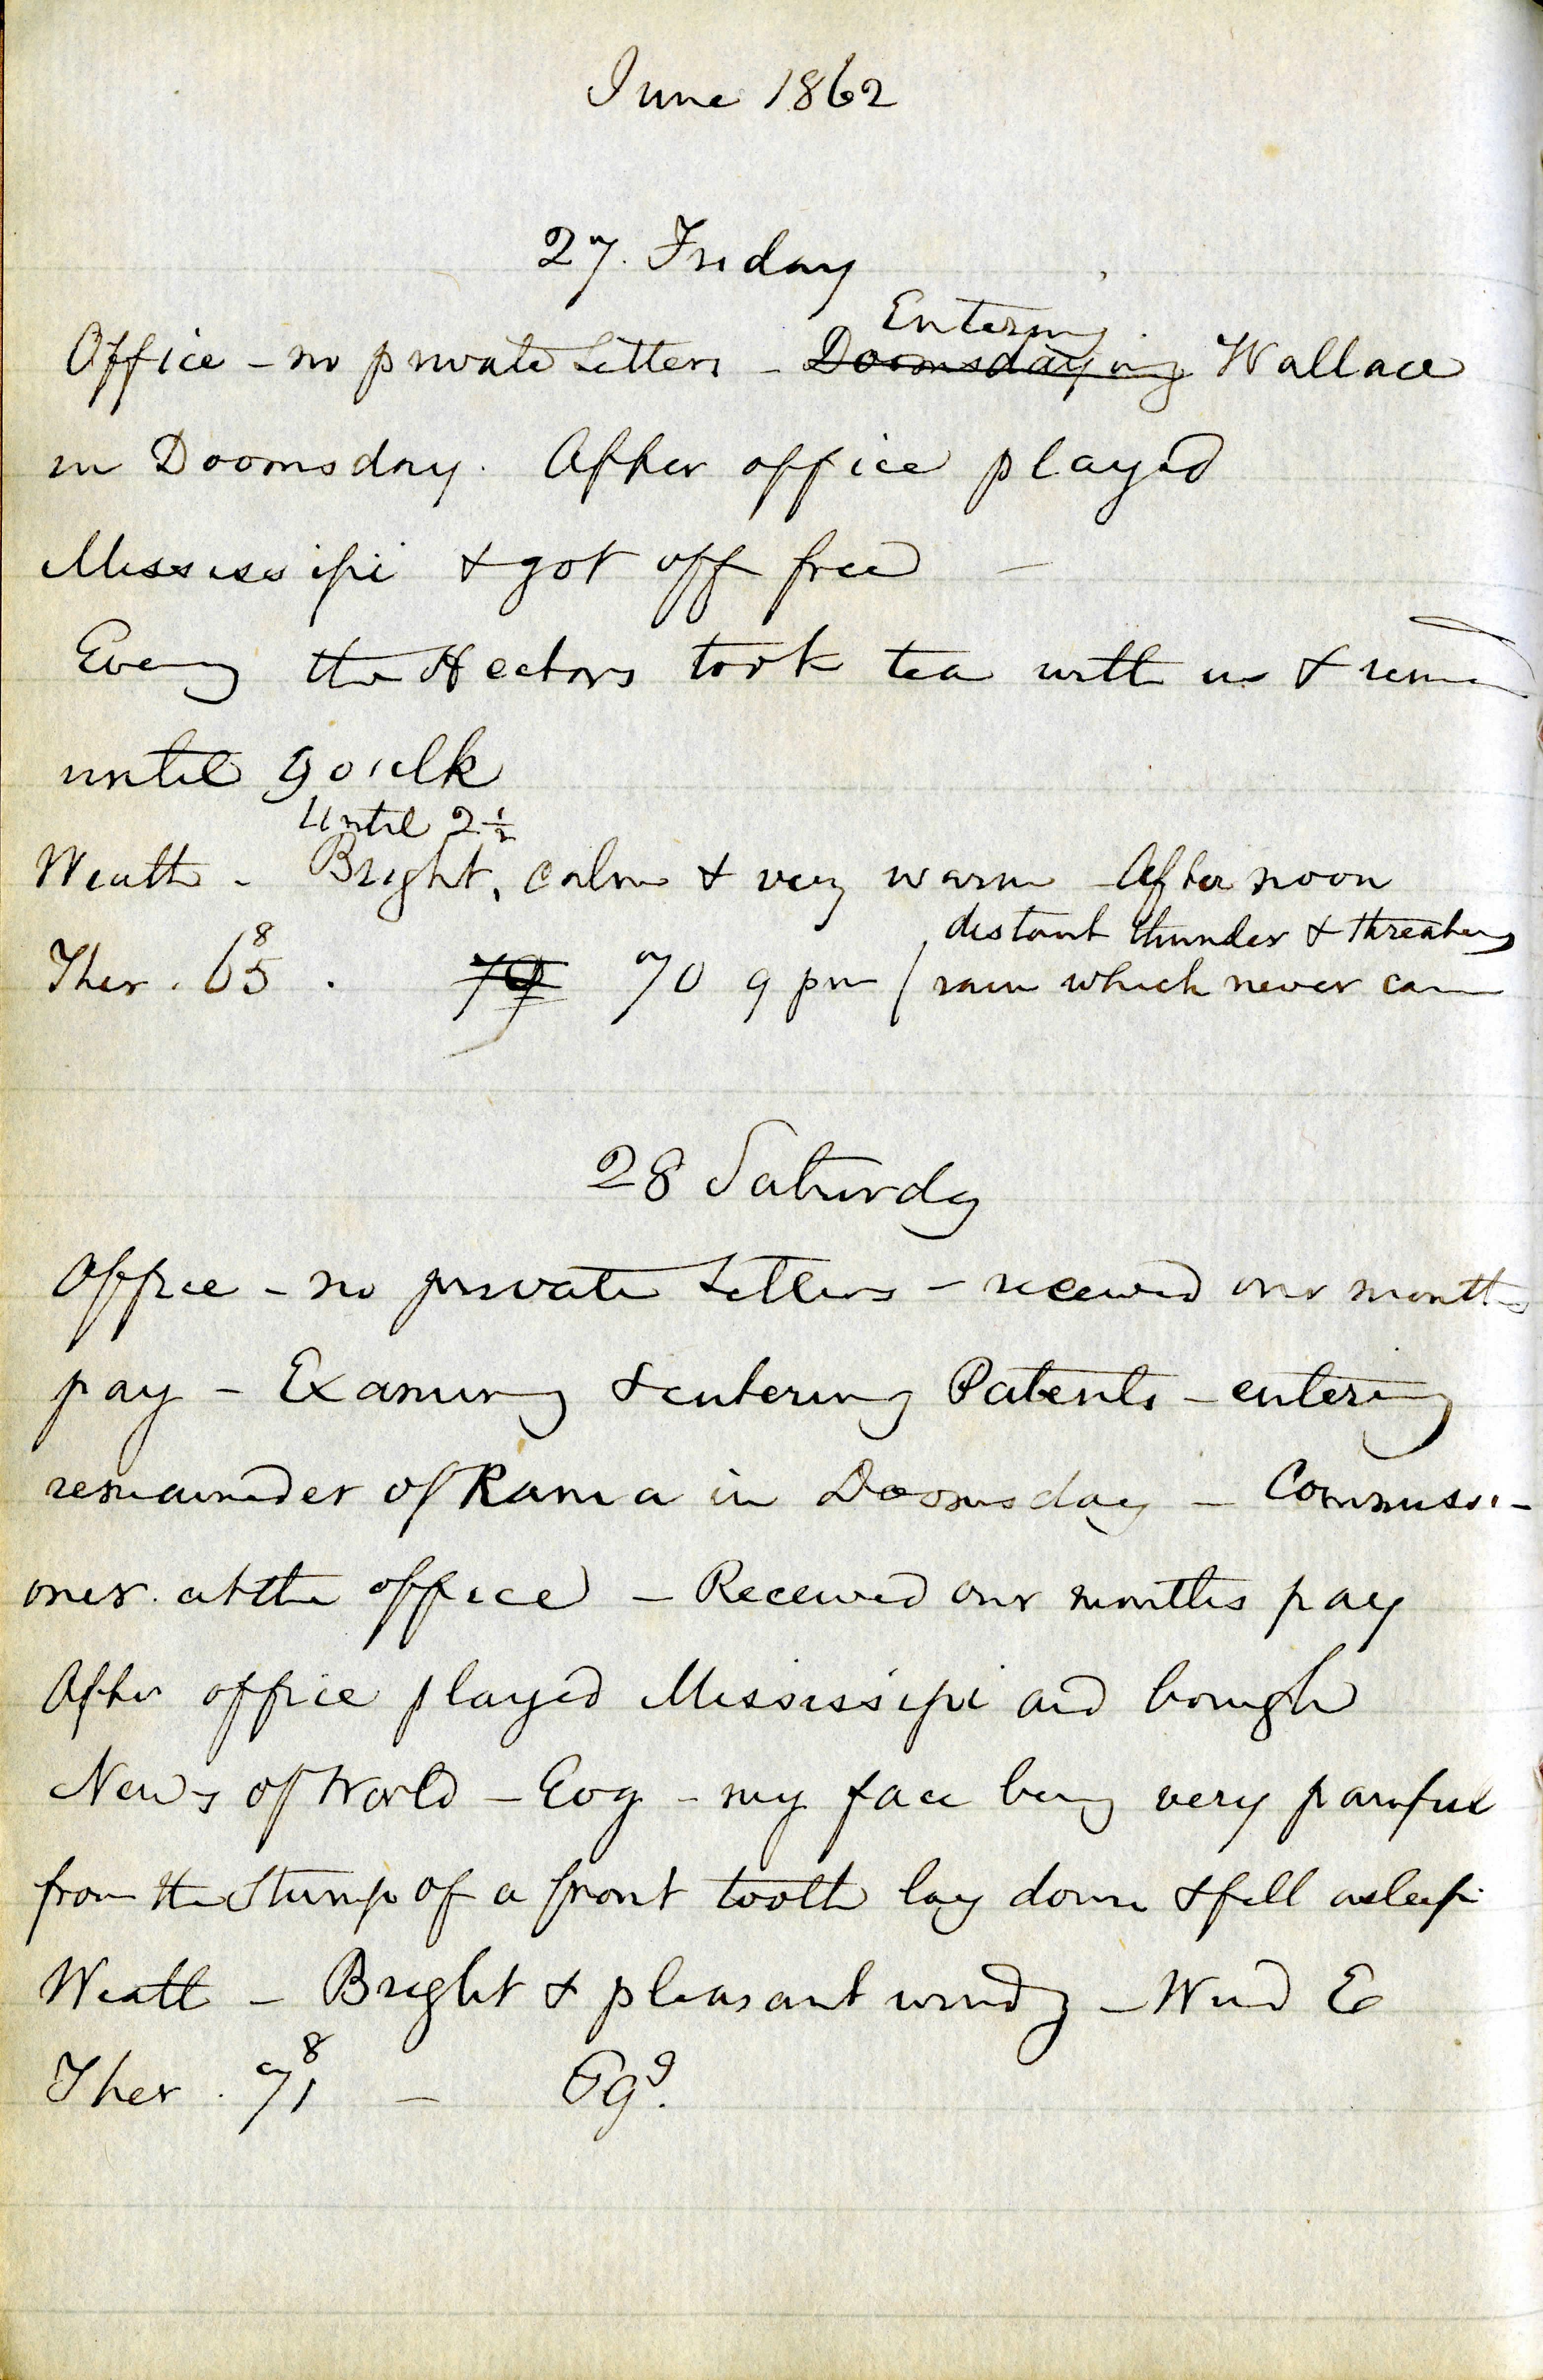 June 1862
27. Friday
Entering
Office - no private Letters - Doomsdaying Wallace
in Doomsday. After office played
Mississipi & got off free -
Eveng the Hectors took tea with us & remd
until 9 oclk
Until 2 1/2
Weath - Bright, calm & very warm - Afternoon
distant thunder & threateng
Ther. 65 8 . 79 70 9 pm / rain which never came
28 Saturdy
Office - no private Letters - received our months
pay - Examing & entering Patents - entering
remainder of Rama in Doomsday - Commissi-
oner at the office - Received our months pay
After office played Mississipi and bought
News of World - Evg - my face being very painful
from the Stump of a front tooth lay down & fell asleep
Weath - Bright & pleasant windy - Wind E
Ther. 71 8 - 69 9.